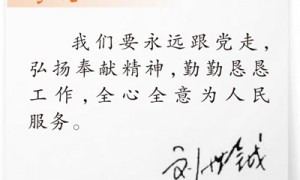 我们要永远跟党走，
弘扬奉献精神，勤勤恳恳
工作，全心全意为人民
服务。